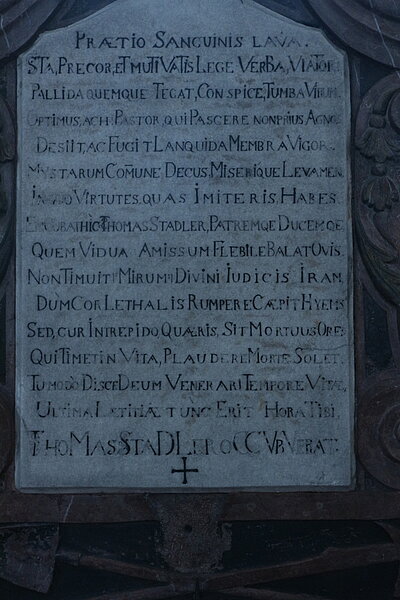 PRÆTIO SANGUINIS LAVA.
STA, PRECOR, ET MUTI VATIS LEGE VERBA, VIATOR
PALLIDA QUEMQUE TEGAT, CONSPICE, TUMBA VIRUM.
OPTIMUS, ACH! PASTOR, QUI PASCERE NON PRIUS AGNOS
DESIIT, AC FUGIT LANQUIDA MEMBRA VIGOR.
MYSTARUM COM̃UNE DECUS, MISERIQUE LEVAMEN
VIRTUTES, QUAS IMITERIS, HABES.
HIC THOMAS STADLER, PATREMQE DUCEMQE
QUEM VIDUA AMISSUM FLEBILE BALAT OVIS.
NON TIMUIT (MIRUM) DIVINI JUDICIS IRAM,
DUM COR LETHALIS RUMPERE CÆPIT HYEMS
SED, CUR INTREPIDO QUÆRIS, SIT MORTUUS ORE:
QUI TIMET IN VITA, PLAUDERE MORTE SOLET.
TU MODO DISCE DEUM VENERARI TEMPORE VITÆ,
ULTIMA LETITIÆ TUNC ERIT HORA TIBI.
THOMAS STADLER OCCVBVERAT.